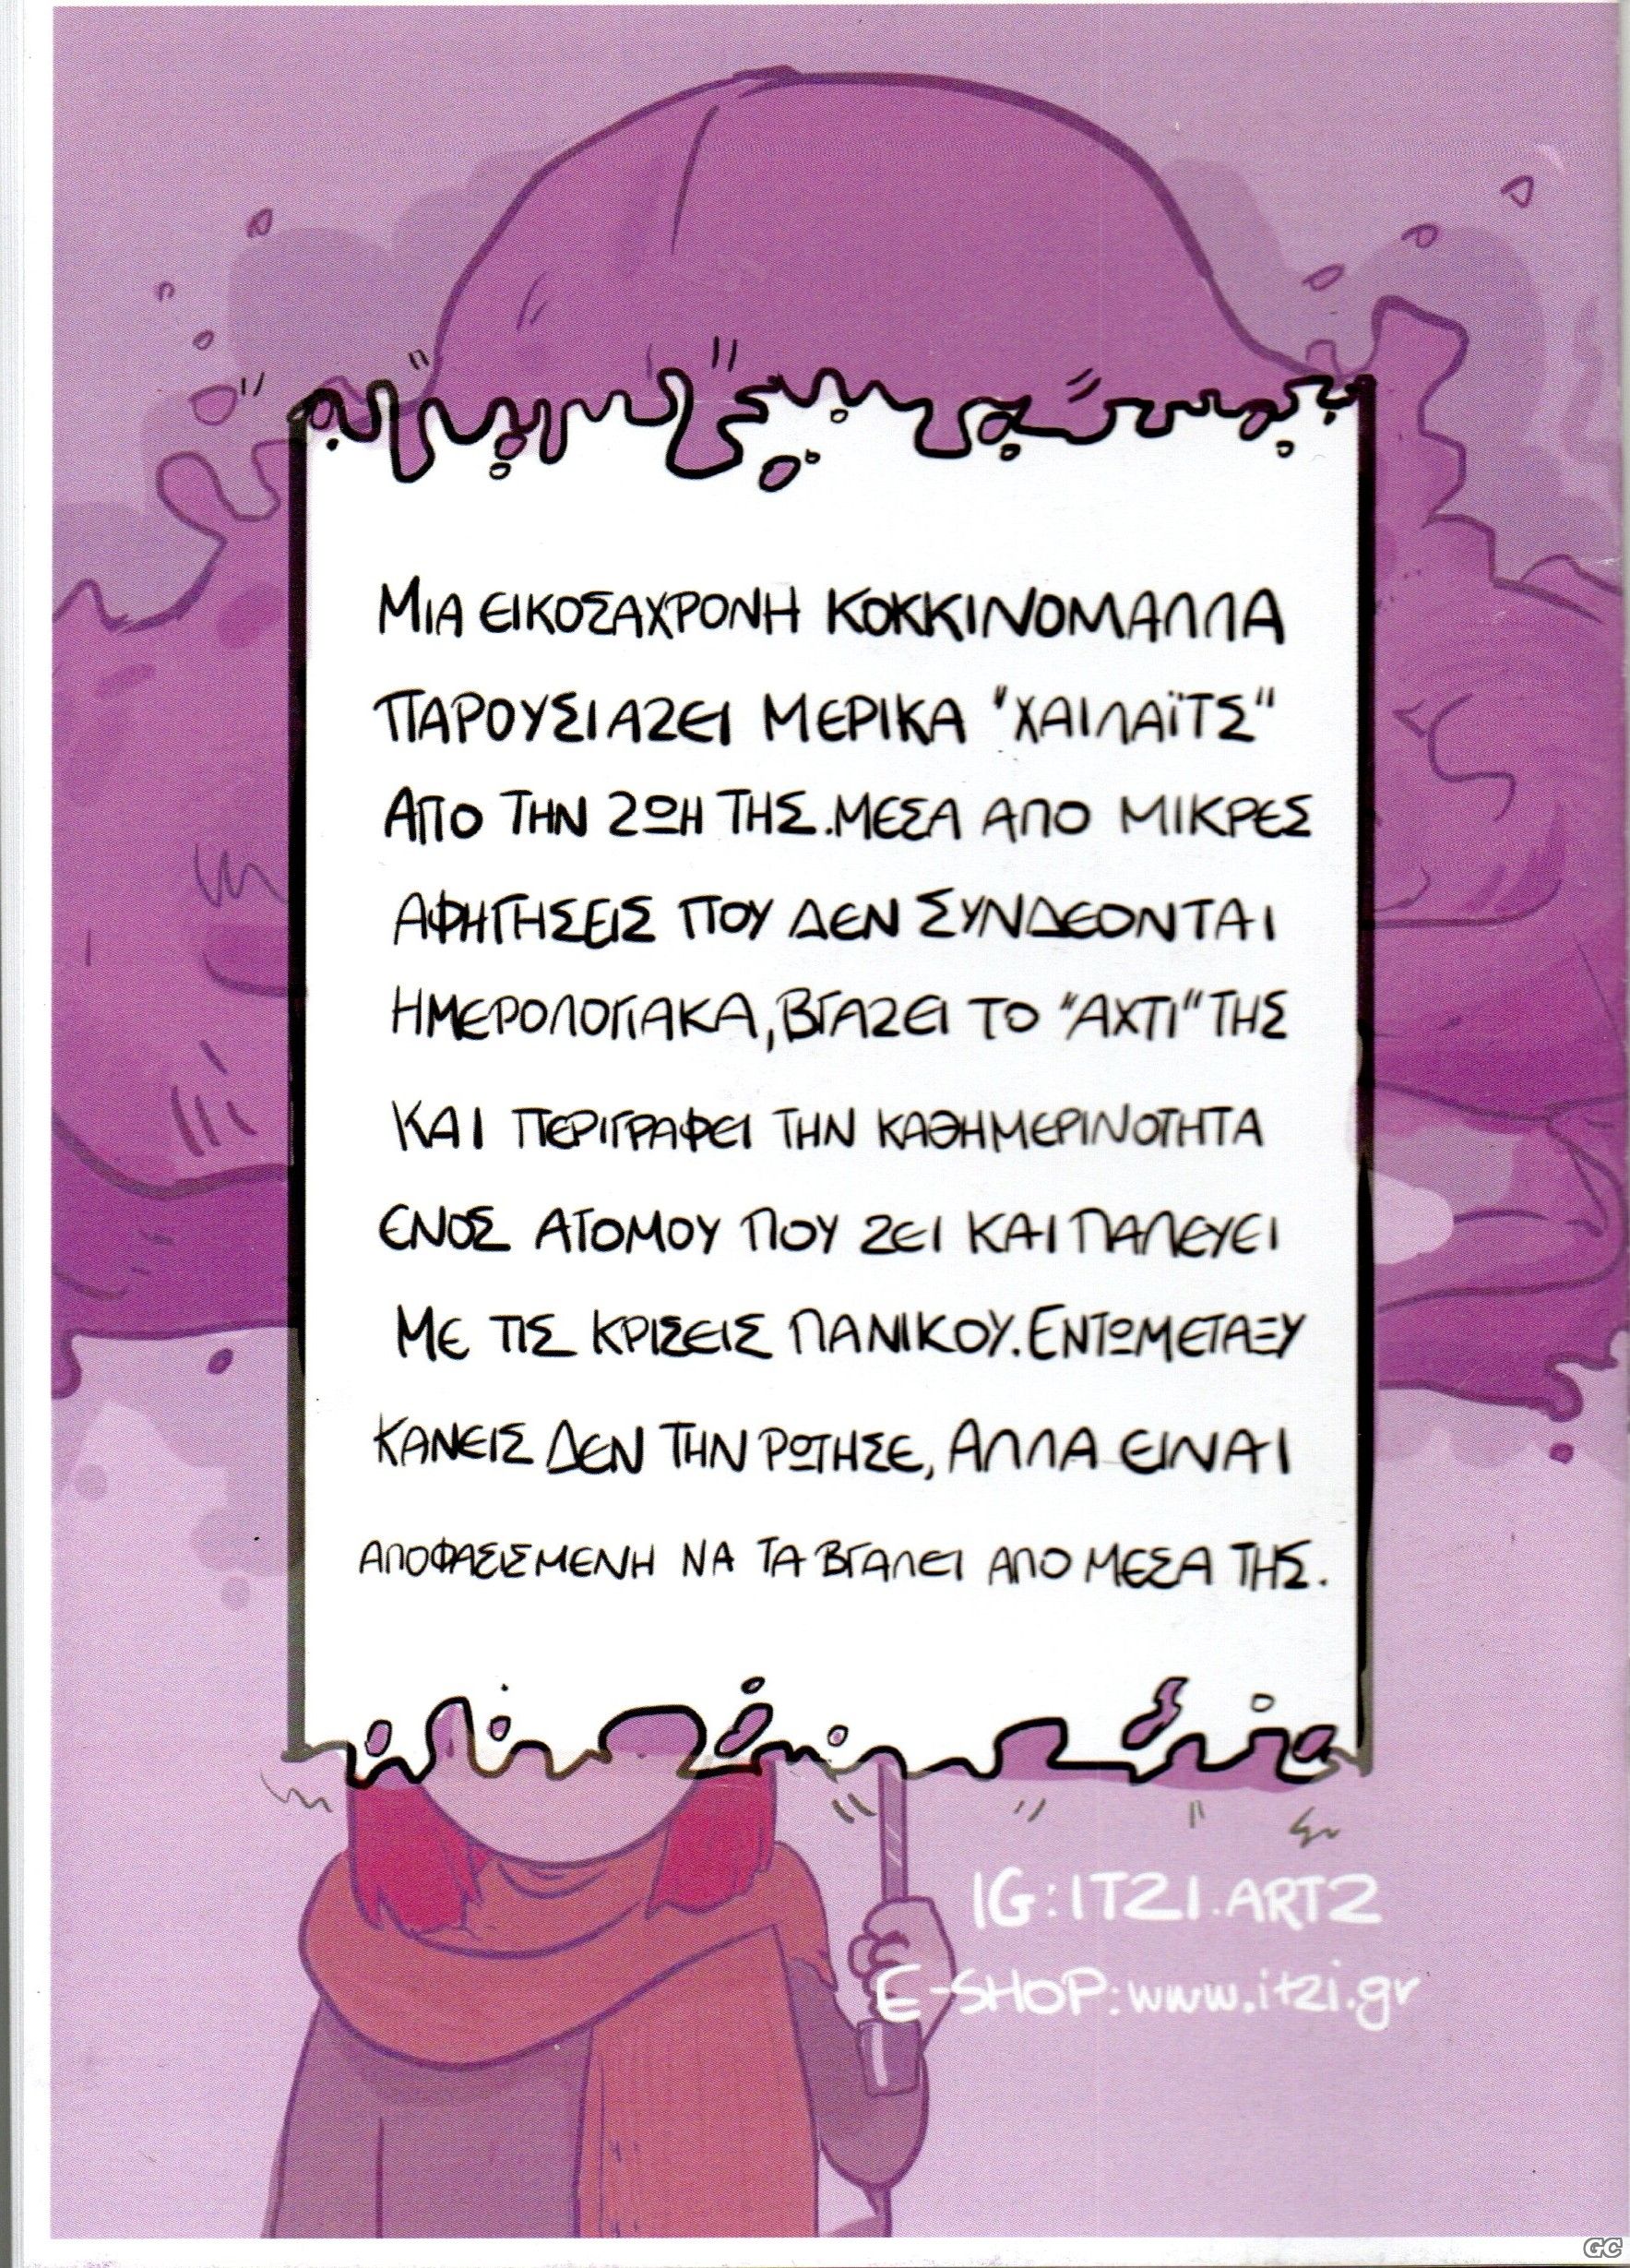 ΜΙΑ ΕΙΚΟΣΑΧΡΟΝΗ ΚΟΚΚΙΝΟΜΑΛΛΑ
ΠΑΡΟΥΣΙΑΖΕΙ ΜΕΡΙΚΑ "ΧΑΙΛΑΪΤΣ"
ΑΠΟ ΤΗΝ ΖΩΗ ΤΗΣ. ΜΕΣΑ ΑΠΟ ΜΙΚΡΕΣ
ΑΦΗΓΗΣΕΙΣ ΠΟΥ ΔΕΝ ΣΥΝΔΕΟΝΤΑΙ
ΗΜΕΡΟΛΟΓΙΑΚΑ, ΒΓΑΖΕΙ ΤΟ "ΑΧΤΙ" ΤΗΣ
ΚΑΙ ΠΕΡΙΓΡΑΦΕΙ ΤΗΝ ΚΑΘΗΜΕΡΙΝΟΤΗΤΑ
ΕΝΟΣ ΑΤΟΜΟΥ ΠΟΥ ΖΕΙ ΚΑΙ ΠΑΛΕΥΕΙ
ΜΕ ΤΙΣ ΚΡΙΣΕΙΣ ΠΑΝΙΚΟΥ. ΕΝΤΩΜΕΤΑΞΥ
ΚΑΝΕΙΣ ΔΕΝ ΤΗΝ ΡΩΤΗΣΕ, ΑΛΛΑ ΕΙΝΑΙ
ΑΠΟΦΑΣΙΣΜΕΝΗ ΝΑ ΤΑ ΒΓΑΛΕΙ ΑΠΟ ΜΕΣΑ ΤΗΣ.
IG: ITZI.ARTZ
E-SHOP: www.itzi.gr
GC